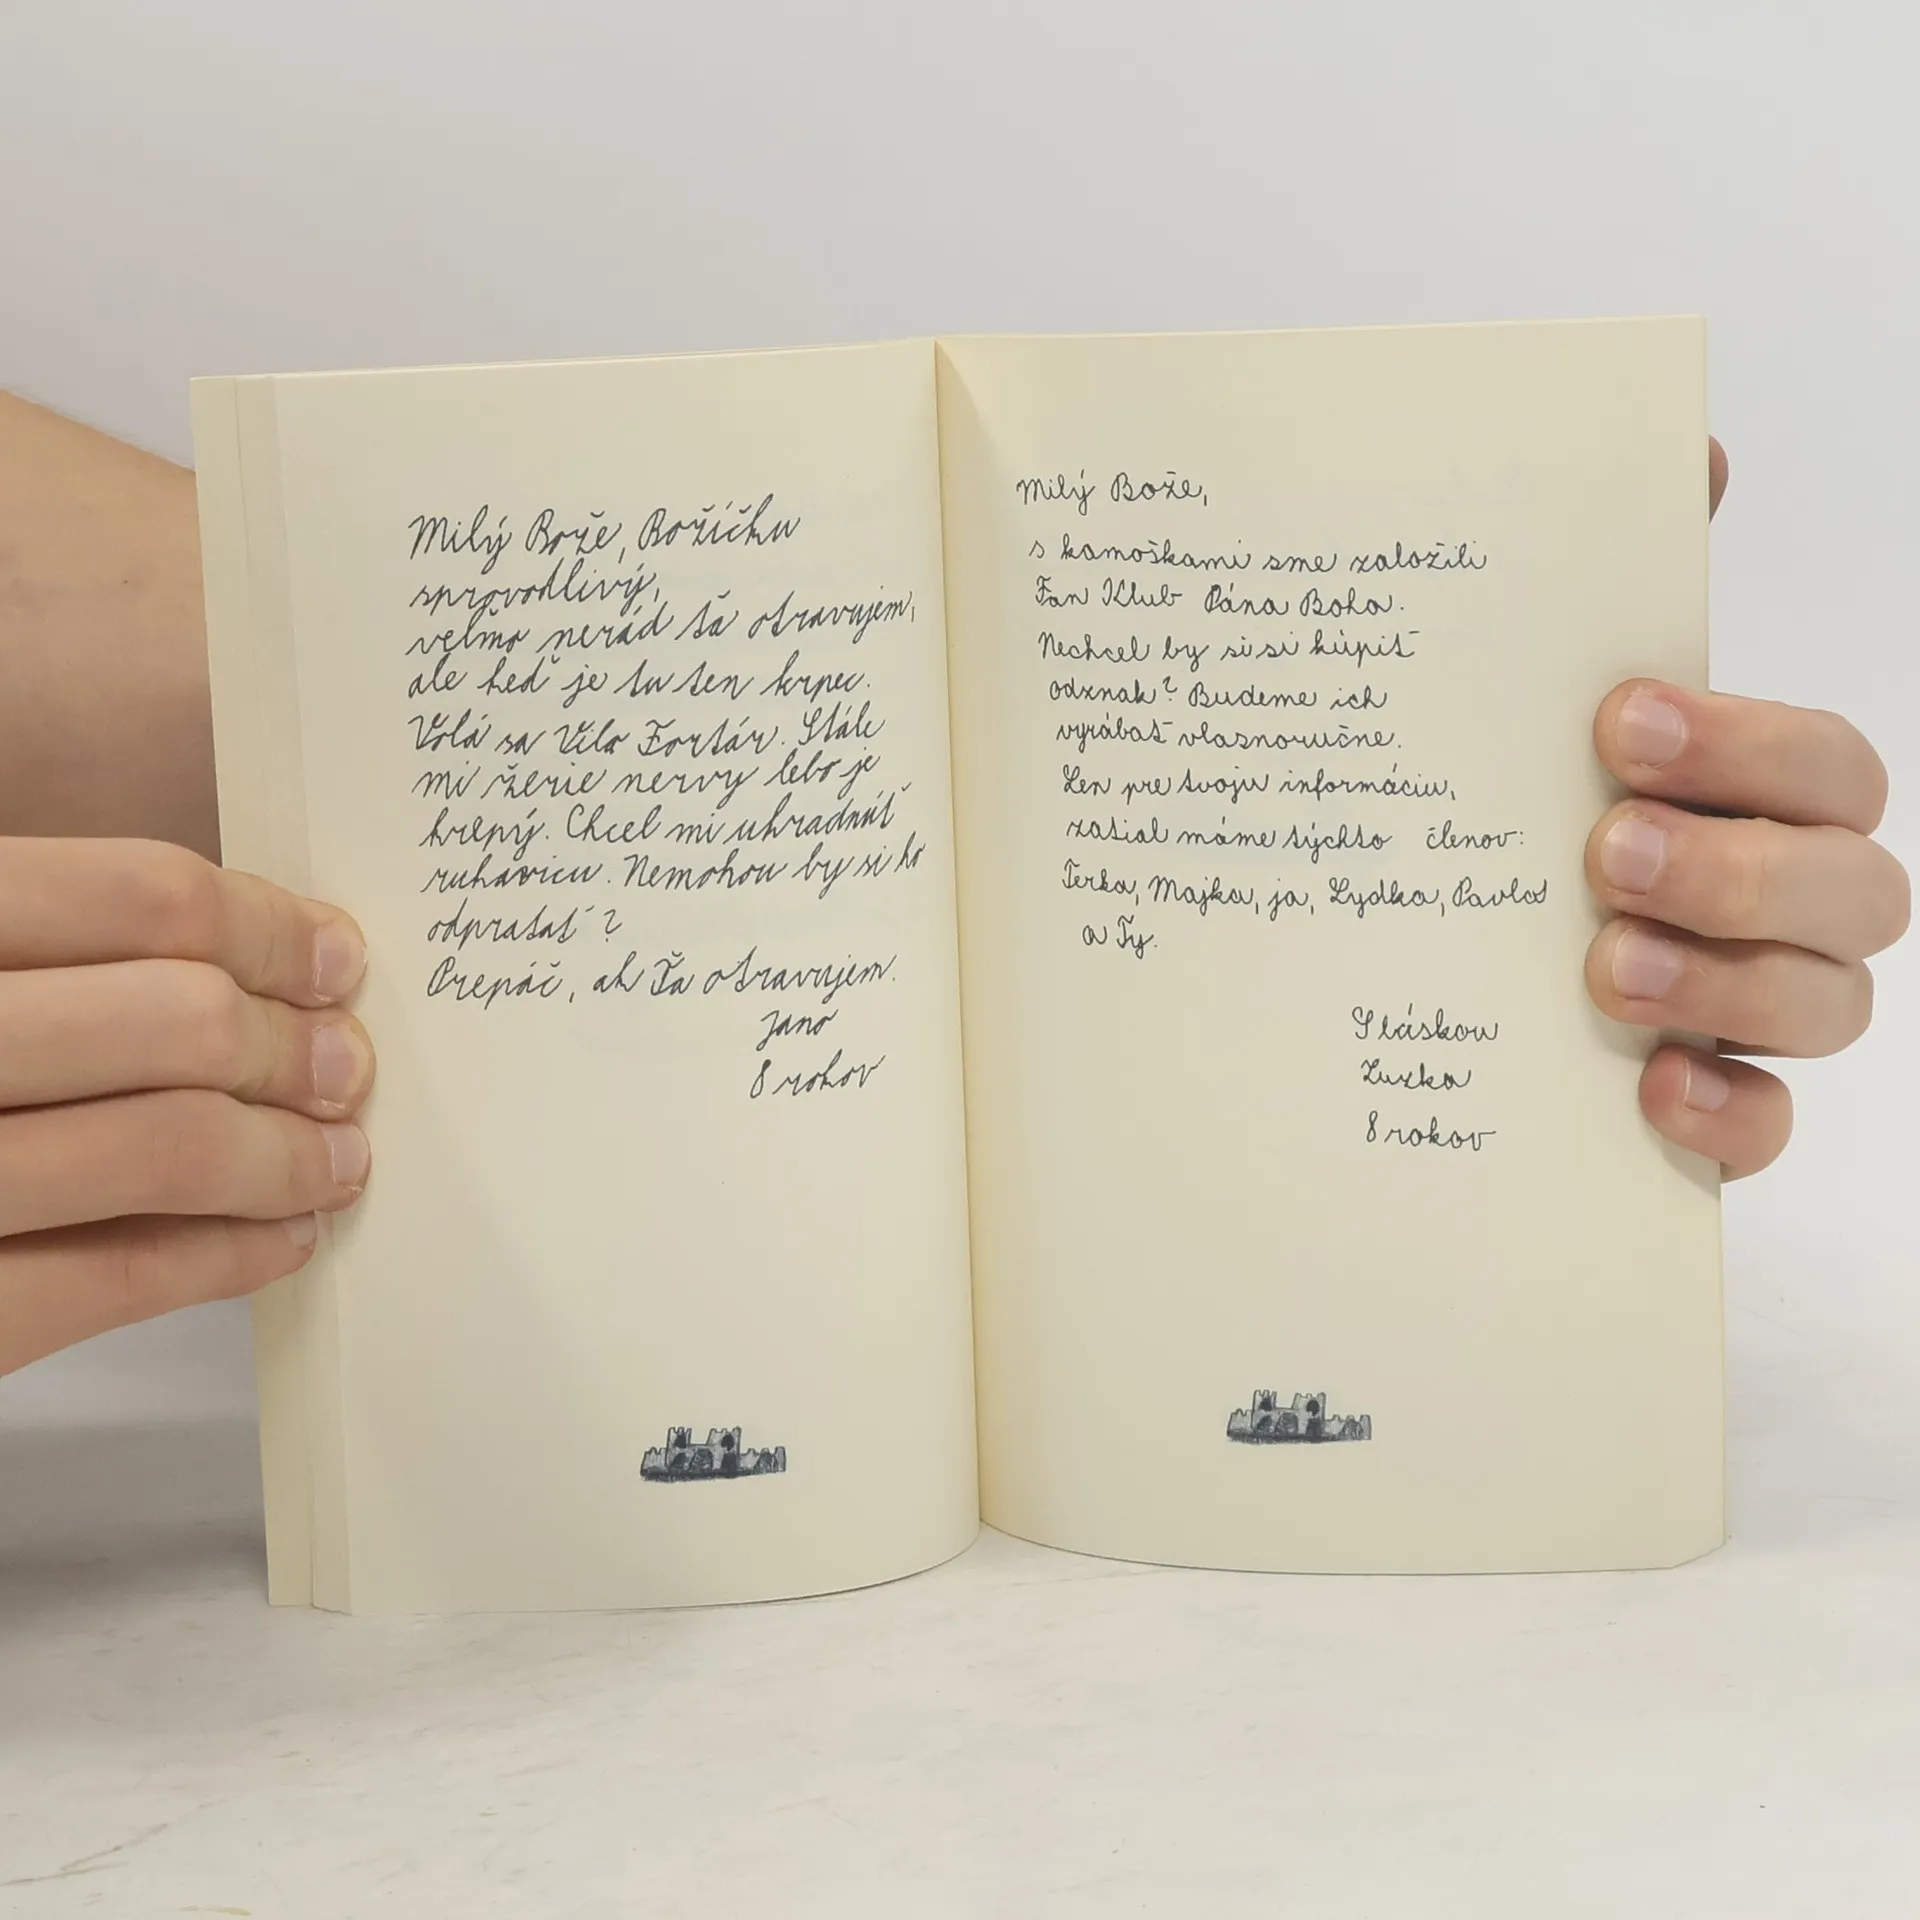 Milý Bože, Božíčku
sprovodlivý,
veľmo nerád ťa otravujem,
ale keď je tu ten krpec.
Volá sa Vilo Fortár. Stále
mi žerie nervy lebo je
krepý. Chcel mi uhradnúť
ruhavicu. Nemohou by si ho
odpratať?
Prepáč, ak Ťa otravujem.
Jano
8 rokov
Milý Bože,
s kamoškami sme založili
Fan Klub Pána Boha.
Nechcel by si si kúpiť
odznak? Budeme ich
vyrábať vlasnoručne.
Len pre tvoju informáciu,
zatial máme týchto členov:
Terka, Majka, ja, Lydka, Pavlos
a Ty.
S láskou
Zuzka
8 rokov